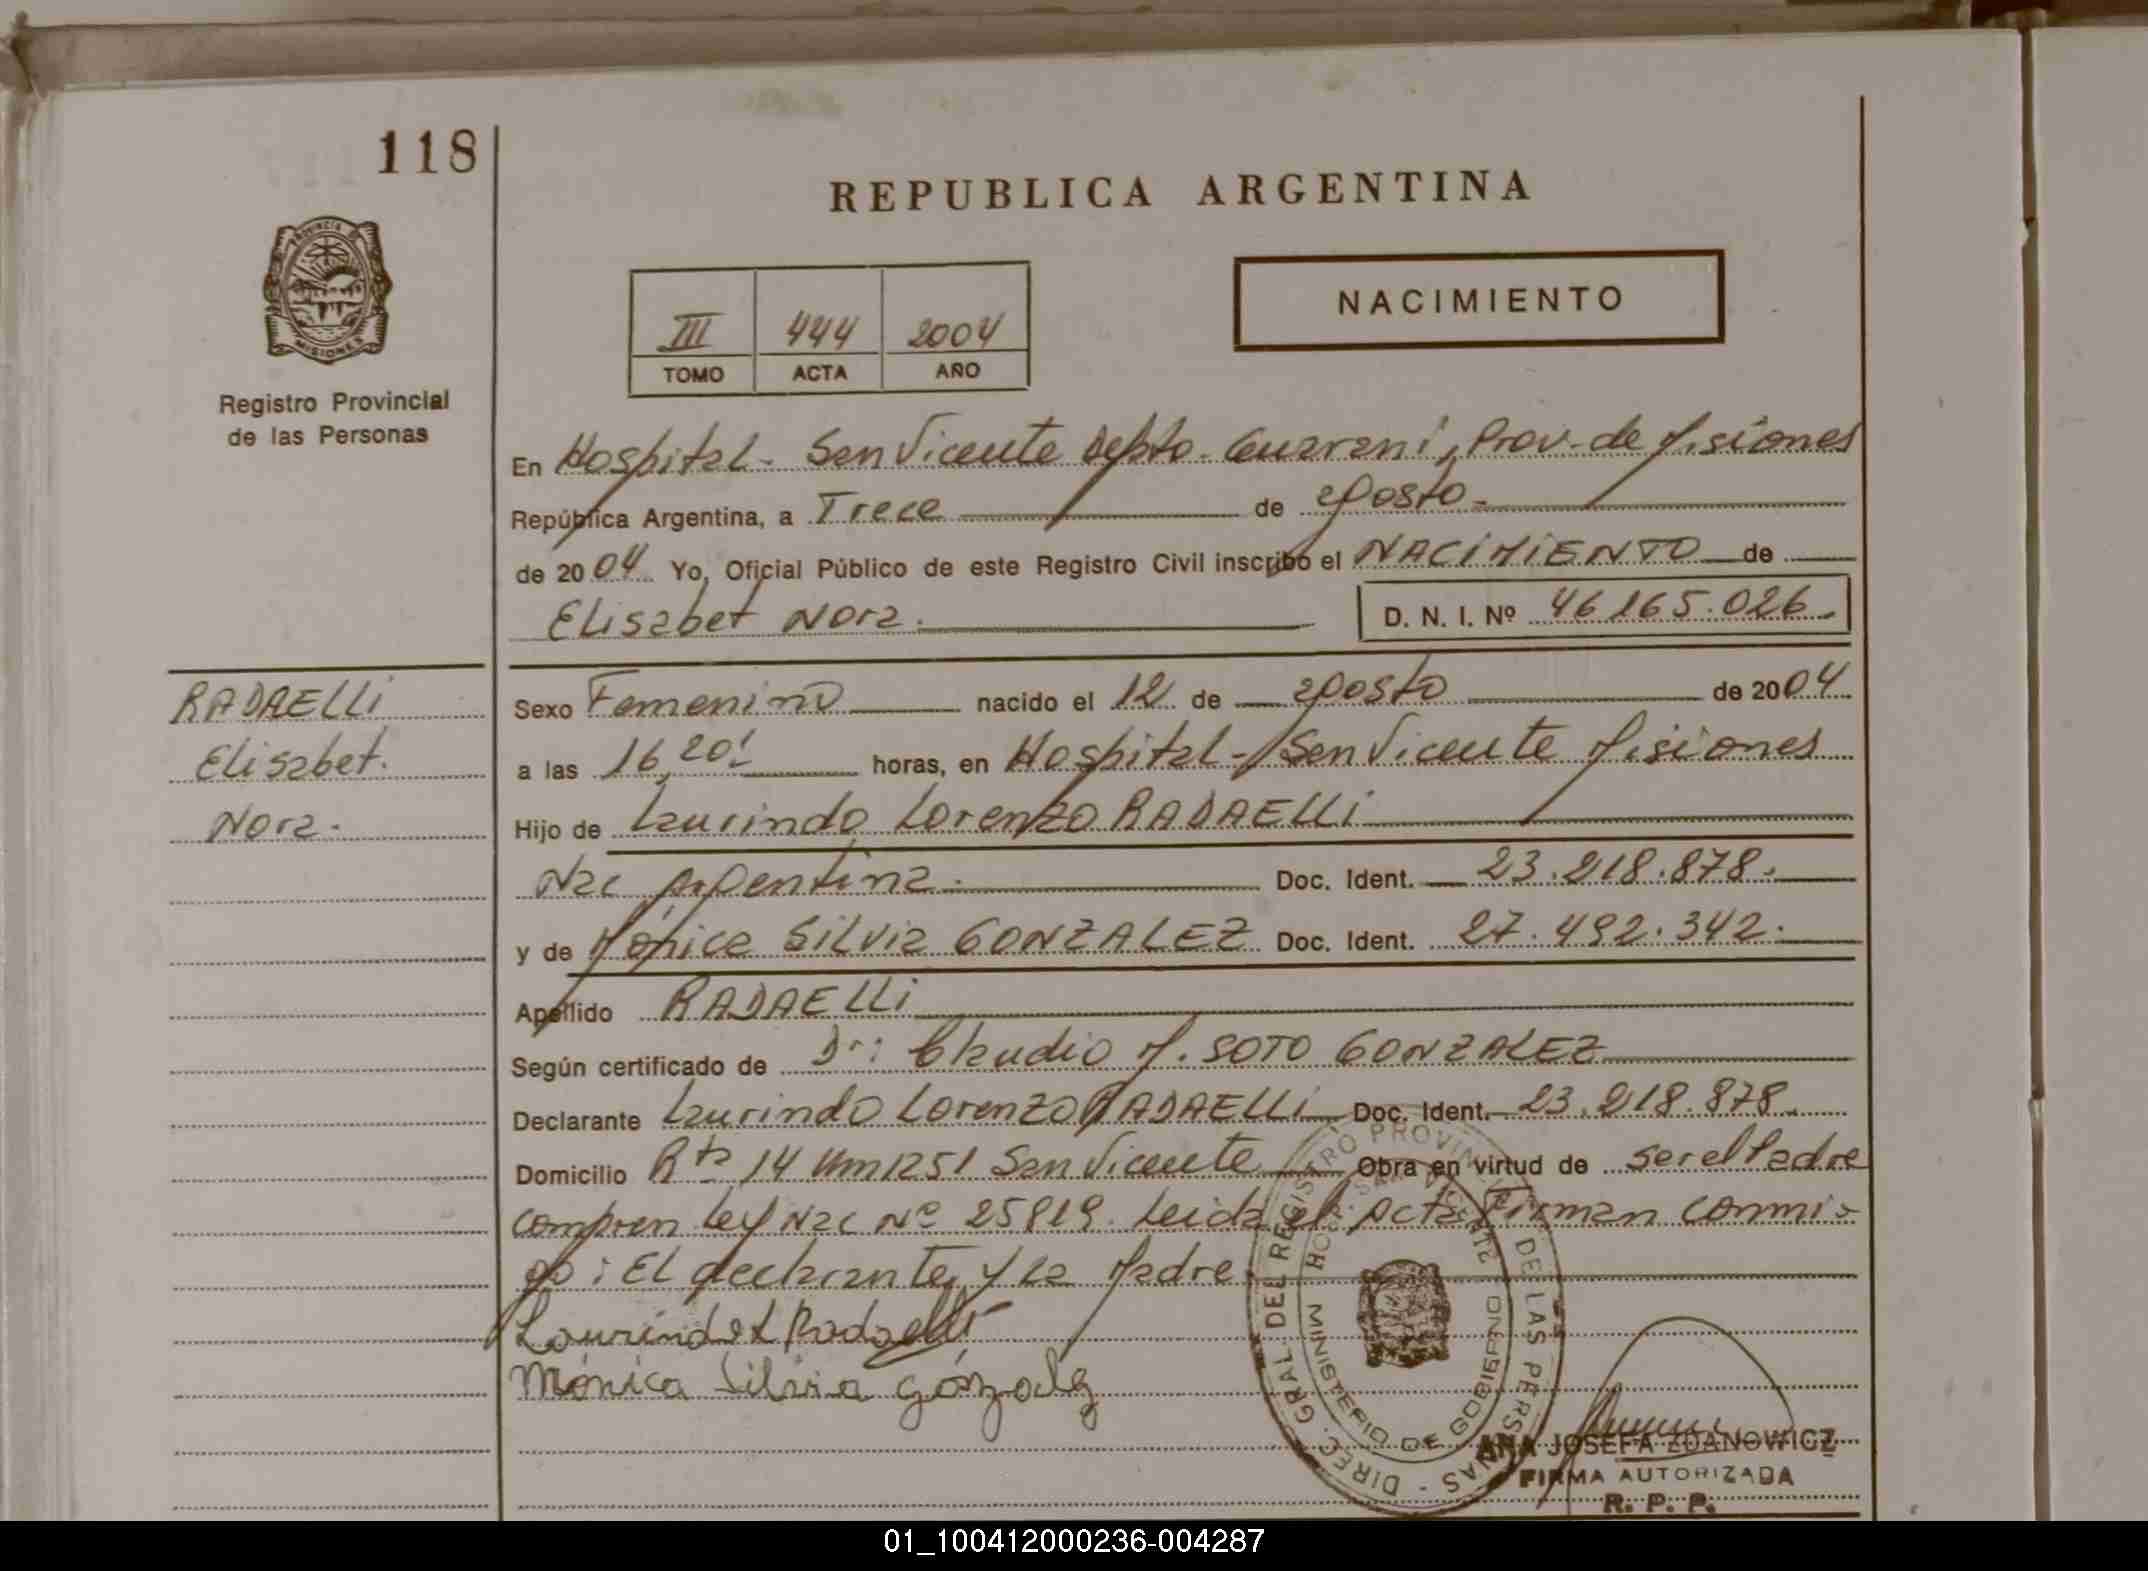 118
REPUBLICA ARGENTINA
NACIMIENTO
III 444 2004
TOMO ACTA AÑO
PROVINCIA DE
MISIONES
Registro Provincial
de las Personas
En Hospital - San Vicente Depto. Guarani, Prov. de Misiones
República Argentina, a Trece de agosto
de 2004 Yo, Oficial Público de este Registro Civil inscribo el NACIMIENTO de
Elisabet Nora. D. N. I. Nº 46165.026
RADAELLI
Elisabet.
Nora.
Sexo Femenino nacido el 12 de agosto de 2004
a las 16,20' horas, en Hospital - San Vicente Misiones
Hijo de Laurindo Lorenzo RADAELLI
Nac Argentina. Doc. Ident. 23.218.878.
y de Mónica Silvia GONZALEZ Doc. Ident. 27.492.342.
Apellido RADAELLI
Según certificado de Dr: Claudio M. SOTO GONZALEZ
Declarante Laurindo Lorenzo RADAELLI Doc. Ident. 23.218.878.
Domicilio Rta 14 Km 1251 San Vicente Obra en virtud de ser el Padre
Compren Ley Nac Nº 25819. Leida el Acta Firman conmi-
go: El declarante y la Madre
Laurindo L Radaelli
Mónica Silvia Gónzalez
DIREC. GRAL. DEL REGISTRO PROVINCIAL DE LAS PERSONAS -
MINISTERIO DE GOBIERNO
ANA JOSEFA ZDANOWICZ
FIRMA AUTORIZADA
R. P. P.
01_100412000236-004287